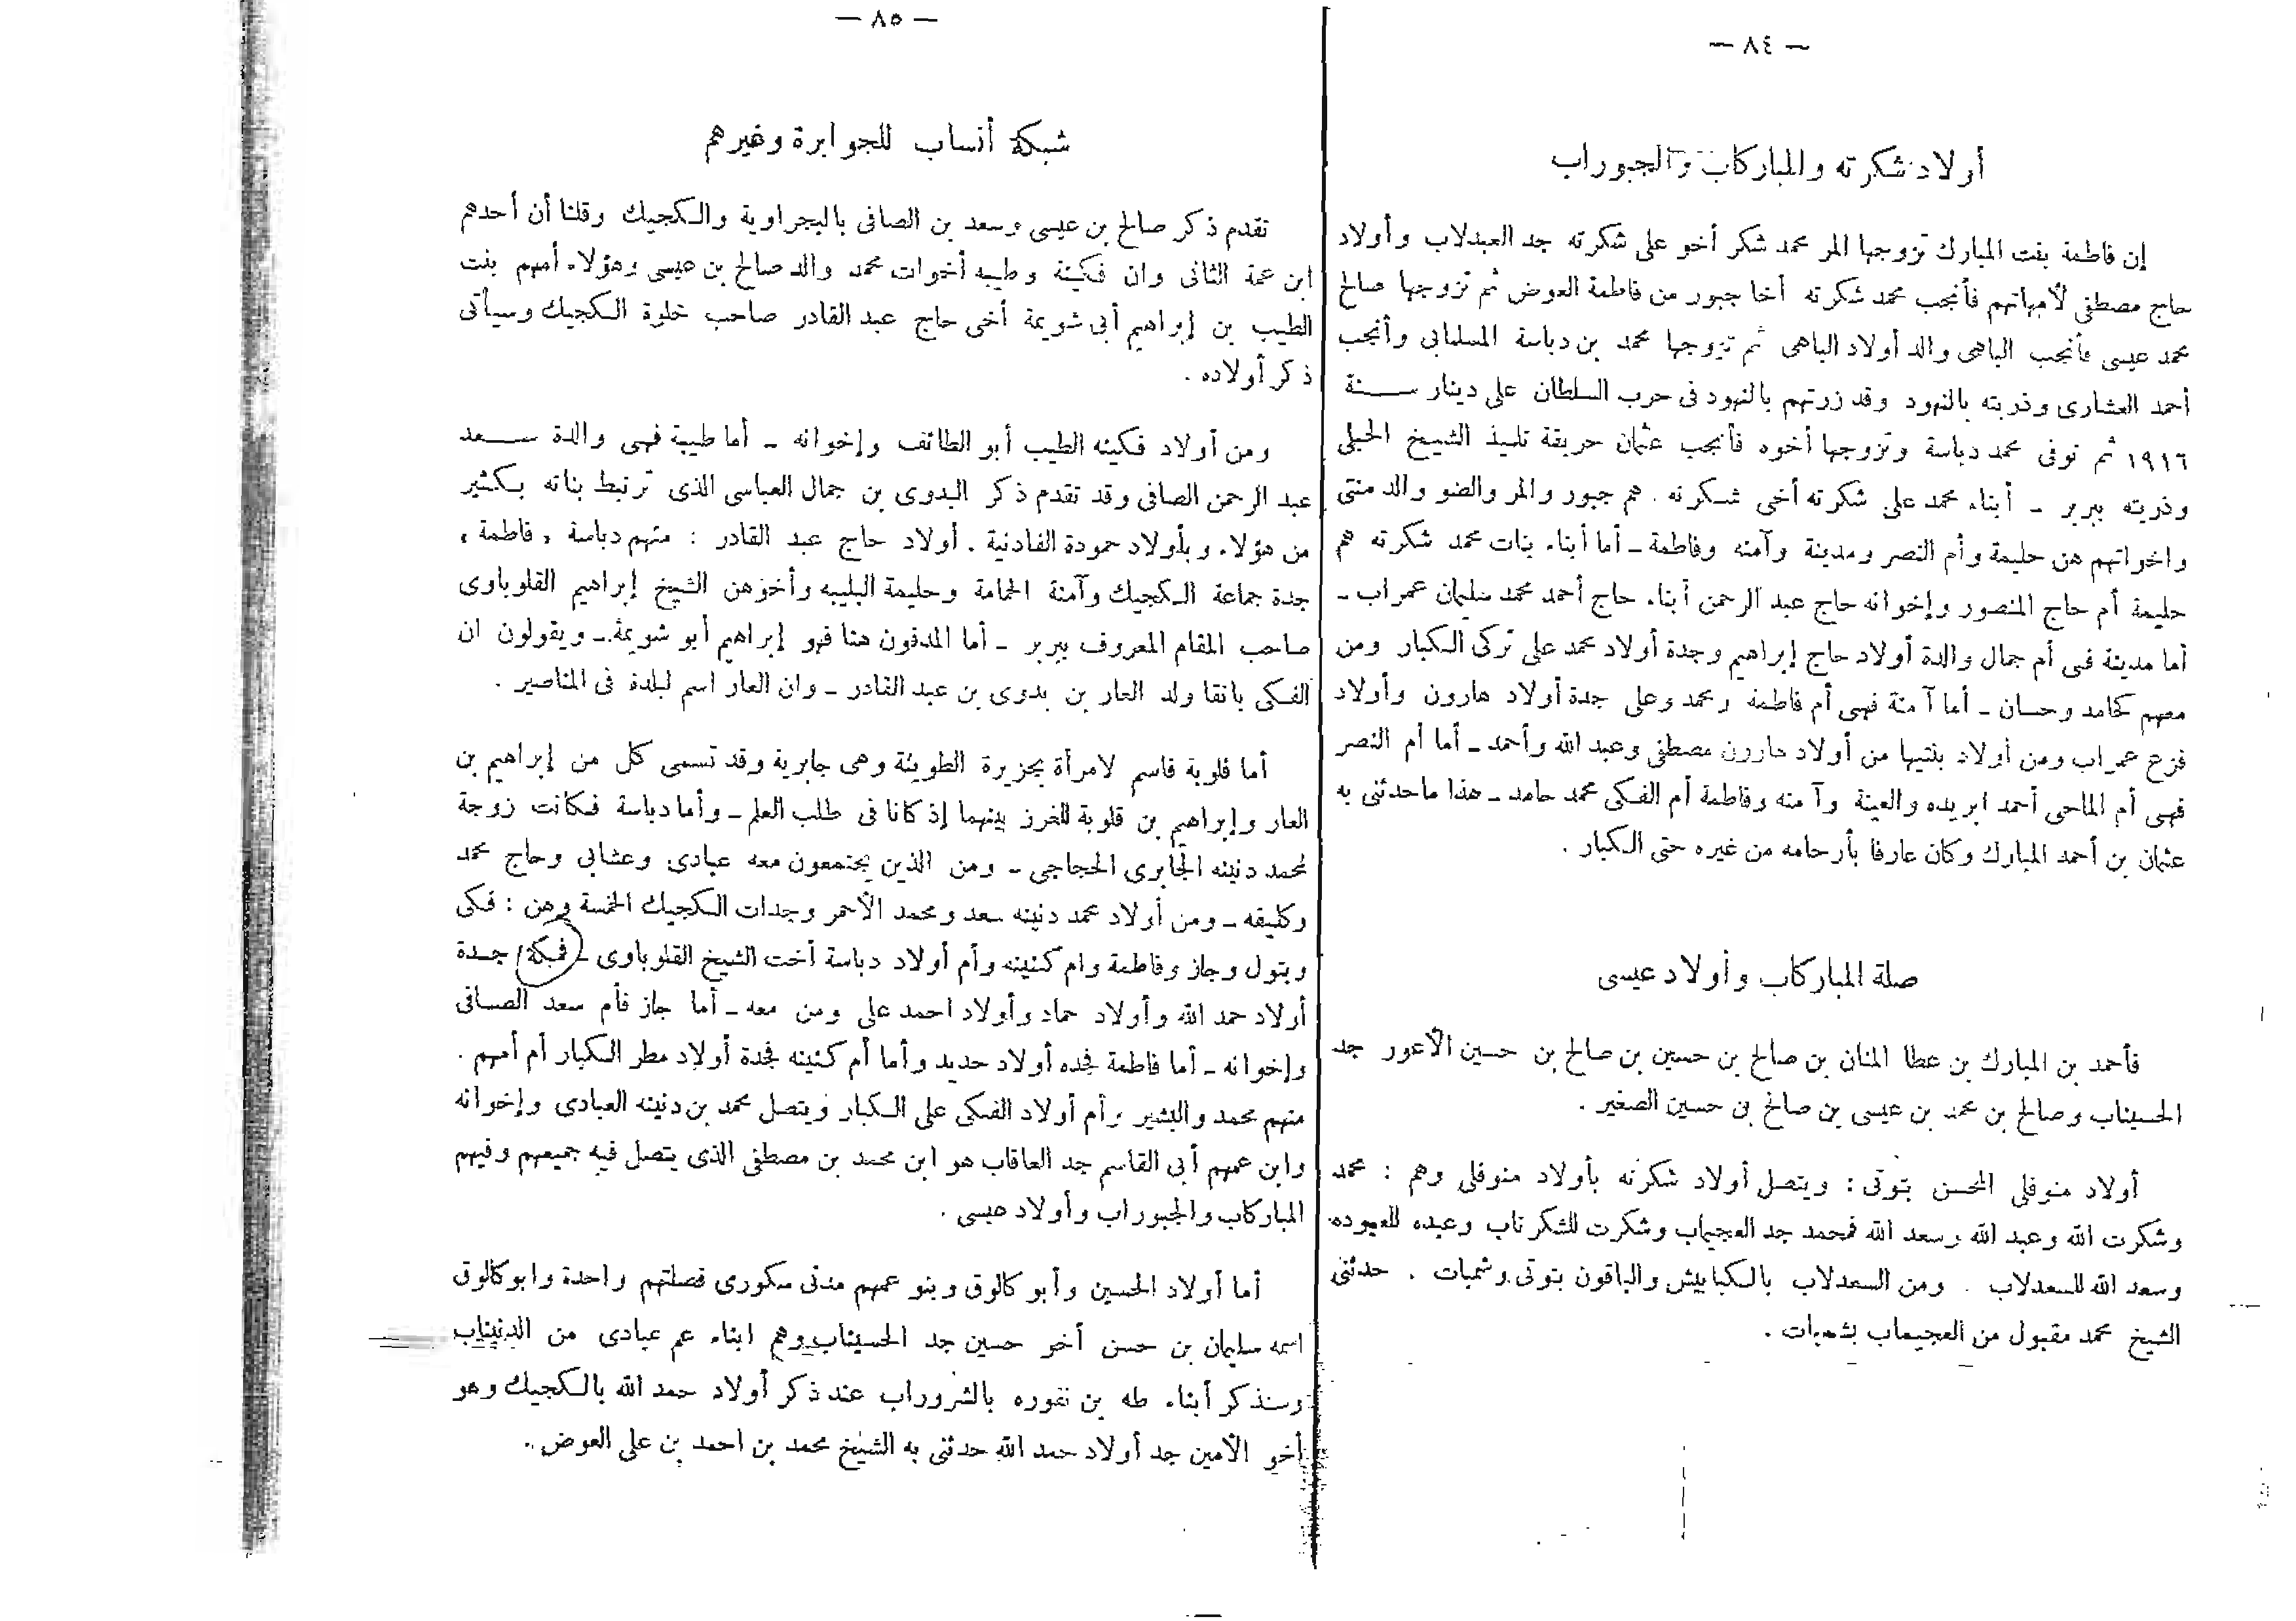 — ٨٤ —
أولاد شكرته والمباركاب والجبوراب
إن فاطمة بنت المبارك تزوجها المر محمد شكر أخو على شكرته جد العبدلاب وأولاد
حاج مصطفى لأمهاتهم فأنجب محمد شكرته أخا جبور من فاطمة العوض ثم تزوجها صالح
محمد عيسى فأنجب الباهى والد أولاد الباهى ثم تزوجها محمد بن دباسة المسلمابى وأنجب
أحمد العشارى وذريته بالنهود وقد زرتهم بالنهود فى حرب السلطان على دينار سنة
١٩١٦ ثم توفى محمد دباسة وتزوجها أخوه فأنجب عثمان حريقة تلميذ الشيخ الجبلى
وذريته ببربر - أبناء محمد على شكرته أخى شكرته . هم جبور والمر والضو والد منتى
واخواتهم هن حليمة وأم النصر ومدينة وآمنه وفاطمة - أما أبناء بنات محمد شكرته هم
حليمة أم حاج المنصور وإخوانه حاج عبد الرحمن أبناء حاج أحمد محمد سليمان عمراب -
أما مدينة فهى أم جمال والدة أولاد حاج إبراهيم وجدة أولاد محمد على تركى الكبار ومن
معهم كحامد وحسان - أما آمنة فهى أم فاطمة ومحمد وعلى جدة أولاد هارون وأولاد
فزع عمراب ومن أولاد بنتيها من أولاد هارون مصطفى وعبد الله وأحمد - أما أم النصر
فهى أم الماحى أحمد ابريده والعينة وآمنه وفاطمة أم الفكى محمد حامد - هذا ماحدثنى به
عثمان بن أحمد المبارك وكان عارفا بأرحامه من غيره حتى الكبار .
صلة المباركاب وأولاد عيسى
فأحمد بن المبارك بن عطا المنان بن صالح بن حسين بن صالح بن حسين الأعور جد
الحسيناب وصالح بن محمد بن عيسى بن صالح بن حسين الصغير .
أولاد منوفلى المحسن بتوتى : ويتصل أولاد شكرته بأولاد منوفلى وهم : محمد
وشكرت الله وعبد الله وسعد الله فمحمد جد العجيماب وشكرت للشكرتاب وعبده للعبوده
وسعد الله للسعدلاب . ومن السعدلاب بالكبابيش والباقون بتوتى وشمبات . حدثنى
الشيخ محمد مقبول من العجيماب بشمبات .
— ٨٥ —
شبكة أنساب للجوابرة وغيرهم
تقدم ذكر صالح بن عيسى وسعد بن الصافى بالبجراوية والكجيك وقلنا أن أحدهم
ابن عمة الثانى وان فكينة وطيبه أخوات محمد والد صالح بن عيسى وهؤلاء أمهم بنت
الطيب بن إبراهيم أبى شويمة أخى حاج عبد القادر صاحب خلوة الكجيك وسيأتى
ذكر أولاده .
ومن أولاد فكينه الطيب أبو الطائف وإخوانه - أما طيبة فهى والدة سعد
عبد الرحمن الصافى وقد تقدم ذكر البدوى بن جمال العباسى الذى ترتبط بناته بكثير
من هؤلاء وبأولاد حمودة الفادنية . أولاد حاج عبد القادر : منهم دباسة , فاطمة ,
جدة جماعة الكجيك وآمنة الحمامة وحليمة البليبه وأخوهن الشيخ إبراهيم القلوباوى
صاحب المقام المعروف ببربر - أما المدفون هنا فهو إبراهيم أبو شويمة - ويقولون ان
الفكى بانقا ولد العار بن بدوى بن عبد القادر - وان العار اسم لبلدة فى المناصير .
أما قلوبة فاسم لامرأة بجزيرة الطوينة وهى جابرية وقد تسمى كل من إبراهيم بن
العار وإبراهيم بن قلوبة للغرز بينهما إذ كانا فى طلب العلم - وأما دباسة فكانت زوجة
لمحمد دنينه الجابرى الحجاجى - ومن الذين يجتمعون معه عبادى وعشابى وحاج محمد
وكليفه - ومن أولاد محمد دنينه سعد ومحمد الأحمر وجدات الكجيك الخمسة وهن : فكى
وبتول وجاز وفاطمة وام كنينه وأم أولاد دباسة أخت الشيخ القلوباوى - فمكة جدة
أولاد حمد الله وأولاد حماد وأولاد احمد على ومن معه - أما جاز فأم سعد الصافى
وإخوانه - أما فاطمة فجده أولاد حديد وأما أم كنينه فجدة أولاد مطر الكبار أم أمهم .
منهم محمد والبشير وأم أولاد الفكى على الكبار ويتصل محمد بن دنينه العبادى وإخوانه
وابن عمهم أبى القاسم جد العاقاب هو ابن محمد بن مصطفى الذى يتصل فيه جميعهم وفيهم
المباركاب والجبوراب وأولاد عيسى .
أما أولاد الحسين وأبو كالوق وبنو عمهم مدنى سكورى فصلتهم واحدة وابوكالوق
اسمه سليمان بن حسن أخو حسين جد الحسيناب وهم ابناء عم عبادى من الدنيناب
وسنذكر أبناء طه بن نفوره بالشروراب عند ذكر أولاد حمد الله بالكجيك وهو
أخو الأمين جد أولاد حمد الله حدثنى به الشيخ محمد بن احمد بن على العوض .